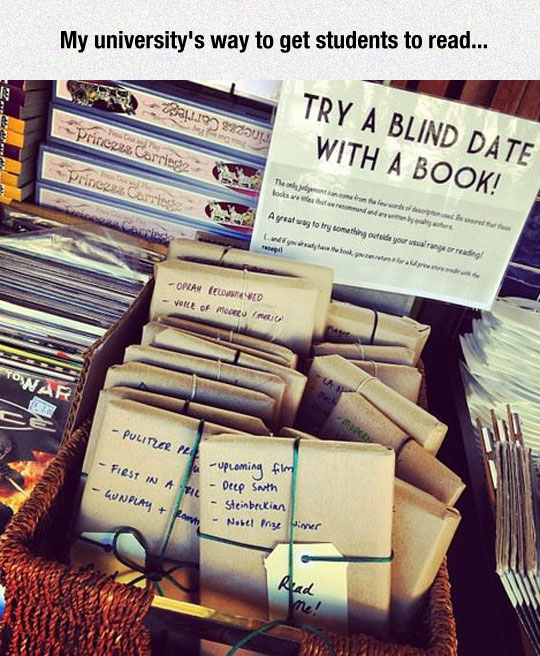 My university's way to get students to read...
TRY A BLIND DATE
WITH A BOOK!
The only judgement can come from the few words of description used. Be assured that these
books are titles that we recommend and are written by quality authors.
A great way to try something outside your usual range or reading!
(...and if you already have the book, you can return it for a full price store credit with the
receipt)
Press Out and Play
Princess Carriage
Press Out and Play
Princess Carriage
Press Out and Play
Princess Carriage
Princess Carriage
- OPRAH RECOMMENDED
- VOICE OF MODERN AMERICA
- PULITZER
- FIRST IN A
- GUNPLAY +
- upcoming film
- Deep South
- Steinbeckian
- Nobel Prize Winner
Read
me!
WAR